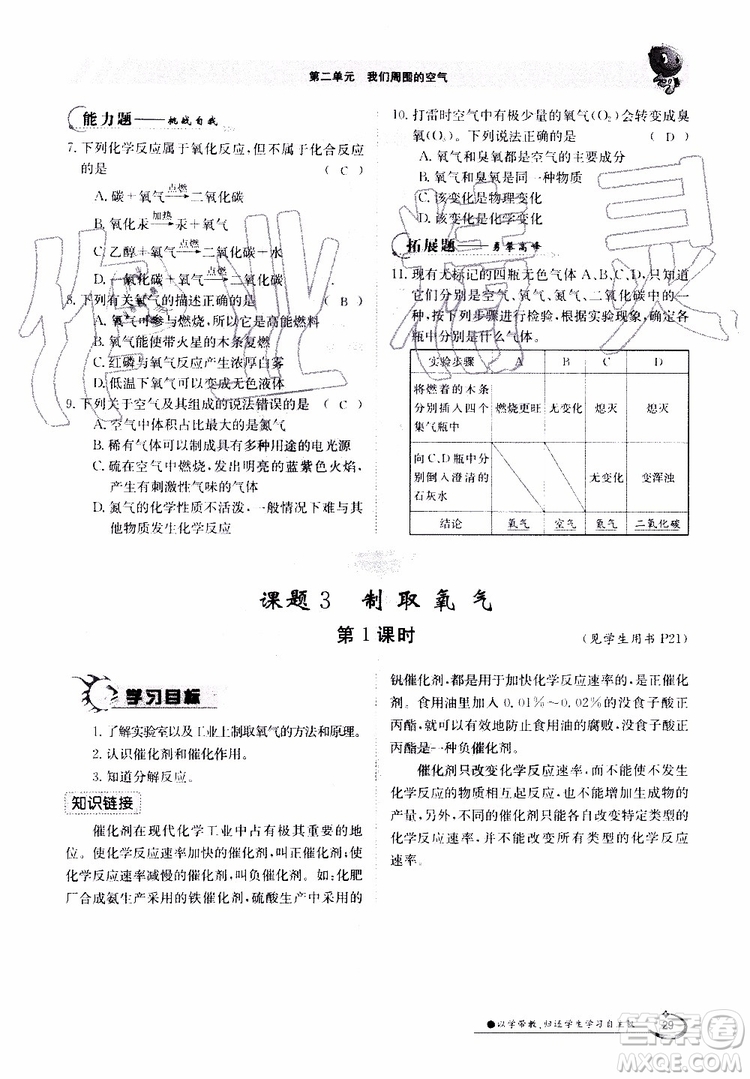 第二单元 我们周围的空气
能力题——挑战自我
7. 下列化学反应属于氧化反应，但不属于化合反应
的是 （ C ）
A. 碳＋氧气 点燃→ 二氧化碳
B. 氧化汞 加热→ 汞＋氧气
C. 乙醇＋氧气 点燃→ 二氧化碳＋水
D. 一氧化碳＋氧气 点燃→ 二氧化碳
8. 下列有关氧气的描述正确的是 （ B ）
A. 氧气可以支持燃烧，所以它是高能燃料
B. 氧气能使带火星的木条复燃
C. 红磷与氧气反应产生浓厚白雾
D. 低温下氧气可以变成无色液体
9. 下列关于空气及其组成的说法错误的是 （ C ）
A. 空气中体积占比最大的是氮气
B. 稀有气体可以制成多种用途的电光源
C. 硫在空气中燃烧，发出明亮的蓝紫色火焰，
产生有刺激性气味的气体
D. 氮气的性质不活泼，一般情况下难与其
他物质发生化学反应
10. 打雷时空气中有极少量的氧气（O₂）会转变成臭
氧（O₃）。下列说法正确的是 （ D ）
A. 氧气和臭氧都是空气的主要成分
B. 氧气与臭氧是同一种物质
C. 该变化是物理变化
D. 该变化是化学变化
拓展题——勇攀高峰
11. 现有无标记的四瓶无色气体 A、B、C、D，只知道
它们分别是空气、氧气、氮气、二氧化碳中的一
种，按如下步骤进行检验，根据实验现象，确定各
瓶中分别是什么气体。
实验步骤 A B C D
将燃着的木条
分别插入四个 燃烧更旺 无变化 熄灭 熄灭
集气瓶中
向 C、D 瓶中分
别倒入澄清的 无变化 变浑浊
石灰水
结论 氧气 空气 氮气 二氧化碳
课题3 制取氧气
第1课时
（见学生用书 P21）
学习目标
1. 了解实验室以及工业上制取氧气的方法和原理。
2. 认识催化剂和催化作用。
3. 知道分解反应。
知识链接
催化剂在现代化学工业中占有极其重要的地
位。使化学反应速率加快的催化剂，叫正催化剂；使
化学反应速率减慢的催化剂，叫负催化剂。如：化肥
厂合成氨生产采用的铁催化剂，硫酸生产中采用的
钒催化剂，都是用于加快化学反应速率的，是正催化
剂。食用油里加入 0.01%～0.02%没食子酸正
丙酯，就可以有效地防止食用油的腐败，没食子酸正
丙酯就是一种负催化剂。
催化剂只改变化学反应速率，而不能改变生成
物的产量，不同的催化剂能各自改变特定类型的化
学反应速率，不能改变所有类型的化学反应
速率。
●以学带教，归还学生学习自主权
29
作业精灵